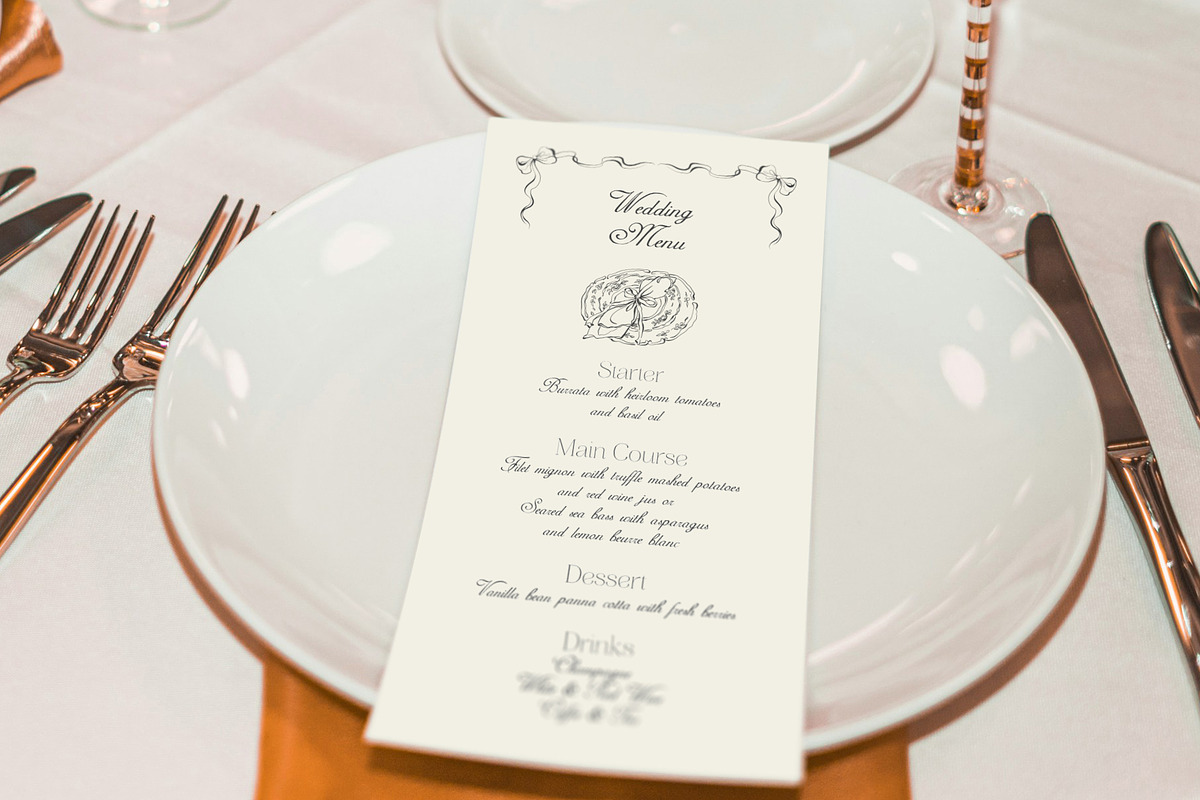 Wedding
Menu
Starter
Burrata with heirloom tomatoes
and basil oil
Main Course
Filet mignon with truffle mashed potatoes
and red wine jus or
Seared sea bass with asparagus
and lemon beurre blanc
Dessert
Vanilla bean panna cotta with fresh berries
Drinks
Champagne